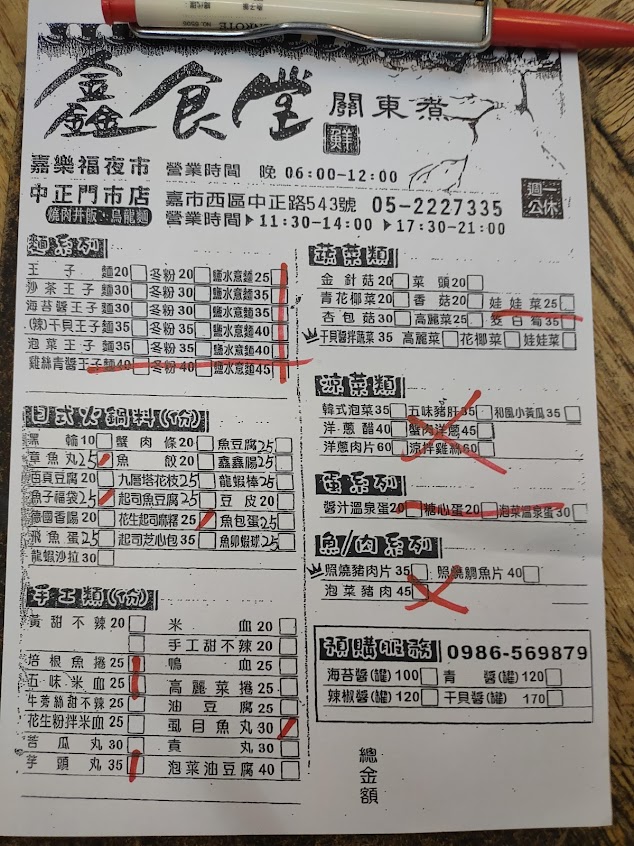 鑫食堂 關東煮
嘉樂福夜市 營業時間 晚 06:00-12:00
中正門市店 嘉市西區中正路543號 05-2227335
燒肉丼飯·烏龍麵 營業時間▶11:30-14:00 ▶17:30-21:00
週一公休
麵系列
王子麵20 冬粉20 鹽水意麵25
沙茶王子麵30 冬粉30 鹽水意麵35
海苔醬王子麵30 冬粉30 鹽水意麵35
(辣)干貝王子麵35 冬粉35 鹽水意麵40
泡菜王子麵35 冬粉35 鹽水意麵40
雞絲青醬王子麵40 冬粉40 鹽水意麵45
日式火鍋料(份)
黑輪10 蟹肉條20 魚豆腐25
章魚丸25 魚餃20 鑫鑫腸25
百頁豆腐20 九層塔花枝25 龍蝦棒25
魚子福袋25 起司魚豆腐25 豆皮20
德國香腸20 花生起司麻糬25 魚包蛋25
飛魚蛋25 起司芝心包35 魚卵蝦球25
龍蝦沙拉30
手工類(份)
黃甜不辣20 米血20
手工甜不辣20
培根魚捲25 鴨血25
五味米血25 高麗菜捲25
牛蒡絲甜不辣25 油豆腐25
花生粉拌米血25 虱目魚丸30
苦瓜丸30 貢丸30
芋頭丸35 泡菜油豆腐40
蔬菜類
金針菇20 菜頭20
青花椰菜20 香菇20 娃娃菜25
杏包菇30 高麗菜25 茭白筍35
干貝醬拌蔬菜35 高麗菜 花椰菜 娃娃菜
涼菜類
韓式泡菜35 五味豬肝35 和風小黃瓜35
洋蔥醋40 蟹肉洋蔥45
洋蔥肉片60 涼拌雞絲60
蛋系列
醬汁溫泉蛋20 糖心蛋20 泡菜溫泉蛋30
魚/肉系列
照燒豬肉片35 照燒鯛魚片40
泡菜豬肉45
預購服務 0986-569879
海苔醬(罐)100 青醬(罐)120
辣椒醬(罐)120 干貝醬(罐)170
總金額